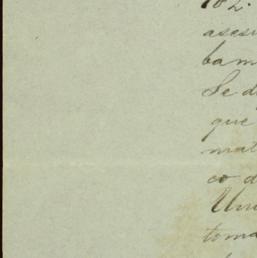 102.
ases
bam
Se d
que
mat
co d
Un
toma